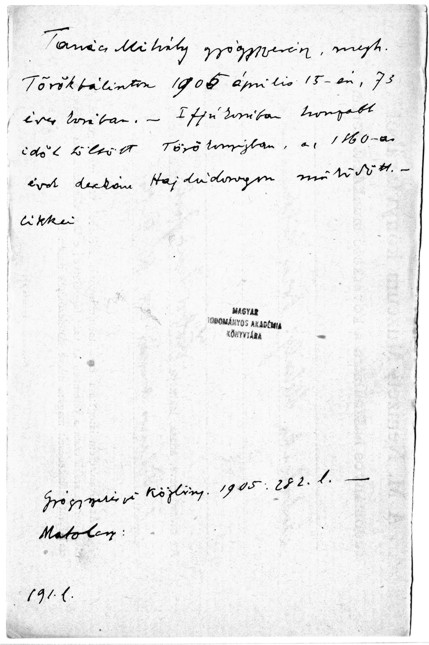 Tanács Mihály gyógyszerész, megh.
Törökbálinton 1905 április 15-én, 73
éves korában. – Ifjú korában hosszabb
időt töltött Törökországban, az 1860-as
évek Hajdúdorogon működött. –
Cikkei
MAGYAR
TUDOMÁNYOS AKADÉMIA
KÖNYVTÁRA
Gyógyszerészi Közlöny. 1905. 282. l. —
Matolcsy:
191. l.